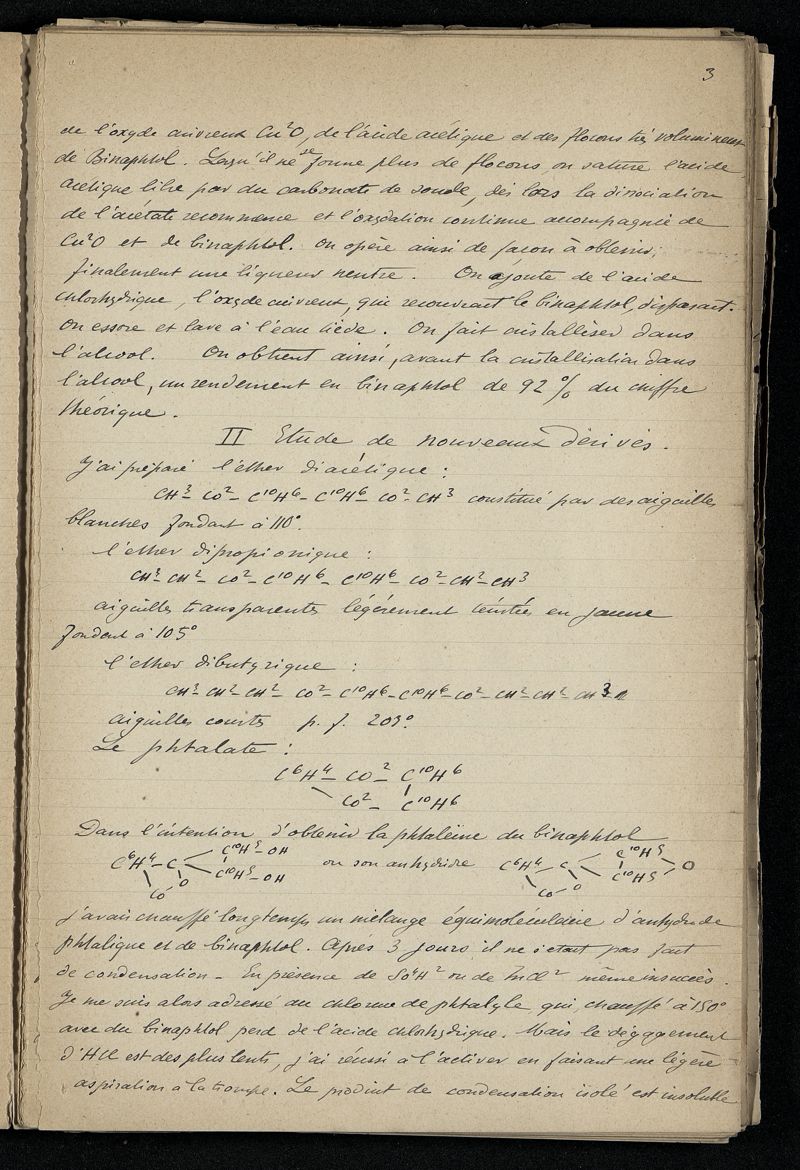 3
de l'oxyde cuivreux Cu²O, de l'acide acétique et des flocons très volumineux
de Binaphtol. Lorsqu'il ne se forme plus de flocons, on sature l'acide
acétique libre par du carbonate de soude, dès lors la dissociation
de l'acétate recommence et l'oxydation continue accompagnée de
Cu²O et de binaphtol. On opère ainsi de façon à obtenir,
finalement une liqueur neutre. On ajoute de l'acide
chlorhydrique, l'oxyde cuivreux, qui recouvrait le binaphtol, disparait.
On essore et lave à l'eau tiède. On fait cristalliser dans
l'alcool. On obtient ainsi, avant la cristallisation dans
l'alcool, un rendement en binaphtol de 92 % du chiffre
théorique.
II Etude de nouveaux Dérivés.
J'ai préparé l'éther diacétique :
CH³ – CO² – C¹⁰H⁶ – C¹⁰H⁶ CO² – CH³ constitué par des aiguilles
blanches fondant à 110°.
l'éther dipropionique :
CH³ – CH² – CO² – C¹⁰H⁶ – C¹⁰H⁶ – CO² – CH² – CH³
aiguilles transparentes légèrement teintées en jaune
fondant à 105°
l'éther dibutyrique :
CH³ – CH² – CH² – CO² – C¹⁰H⁶ – C¹⁰H⁶ – CO² – CH² – CH² – CH³
aiguilles courtes p. f. 203°
Le phtalate :
C⁶H⁴ – CO² – C¹⁰H⁶
CO² – C¹⁰H⁶
Dans l'intention d'obtenir la phtaléine du binaphtol
C¹⁰H⁵ – OH
C⁶H⁴ – C
C¹⁰H⁵ – OH
CO O
ou son anhydride
C⁶H⁴ – C
C¹⁰H⁵
C¹⁰H⁵
O
CO O
j'avais chauffé longtemps un mélange équimoléculaire d'anhydride
phtalique et de binaphtol. Après 3 jours il ne s'était pas fait
de condensation – En présence de SO⁴H² ou de ZnCl² même insuccès.
Je me suis alors adressé au chlorure de phtalyle qui, chauffé à 150°
avec du binaphtol perd de l'acide chlorhydrique. Mais le dégagement
d'HCl est des plus lents, j'ai réussi à l'activer en faisant une légère
aspiration à la trompe. Le produit de condensation isolé est insoluble